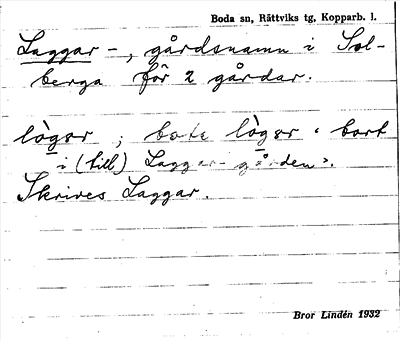 Boda sn, Rättviks tg, Kopparb. l.
Laggar-, gårdsnamn i Sol-
berga för 2 gårdar.
lògər ; lògər ‘bort
i (till) Laggar-gården’.
Skrives Laggar.
Bror Lindén 1932